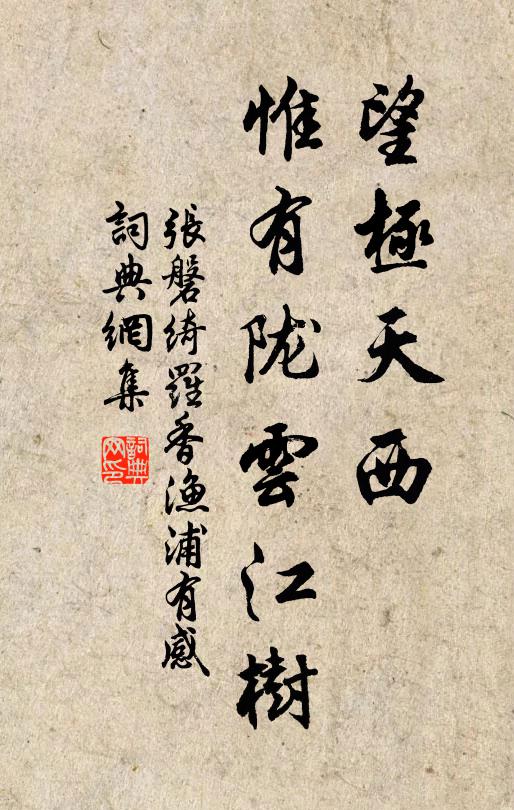 望極天西
惟有陇雲江樹
張磐綺羅香漁浦有感
詞典網集
詞典网印